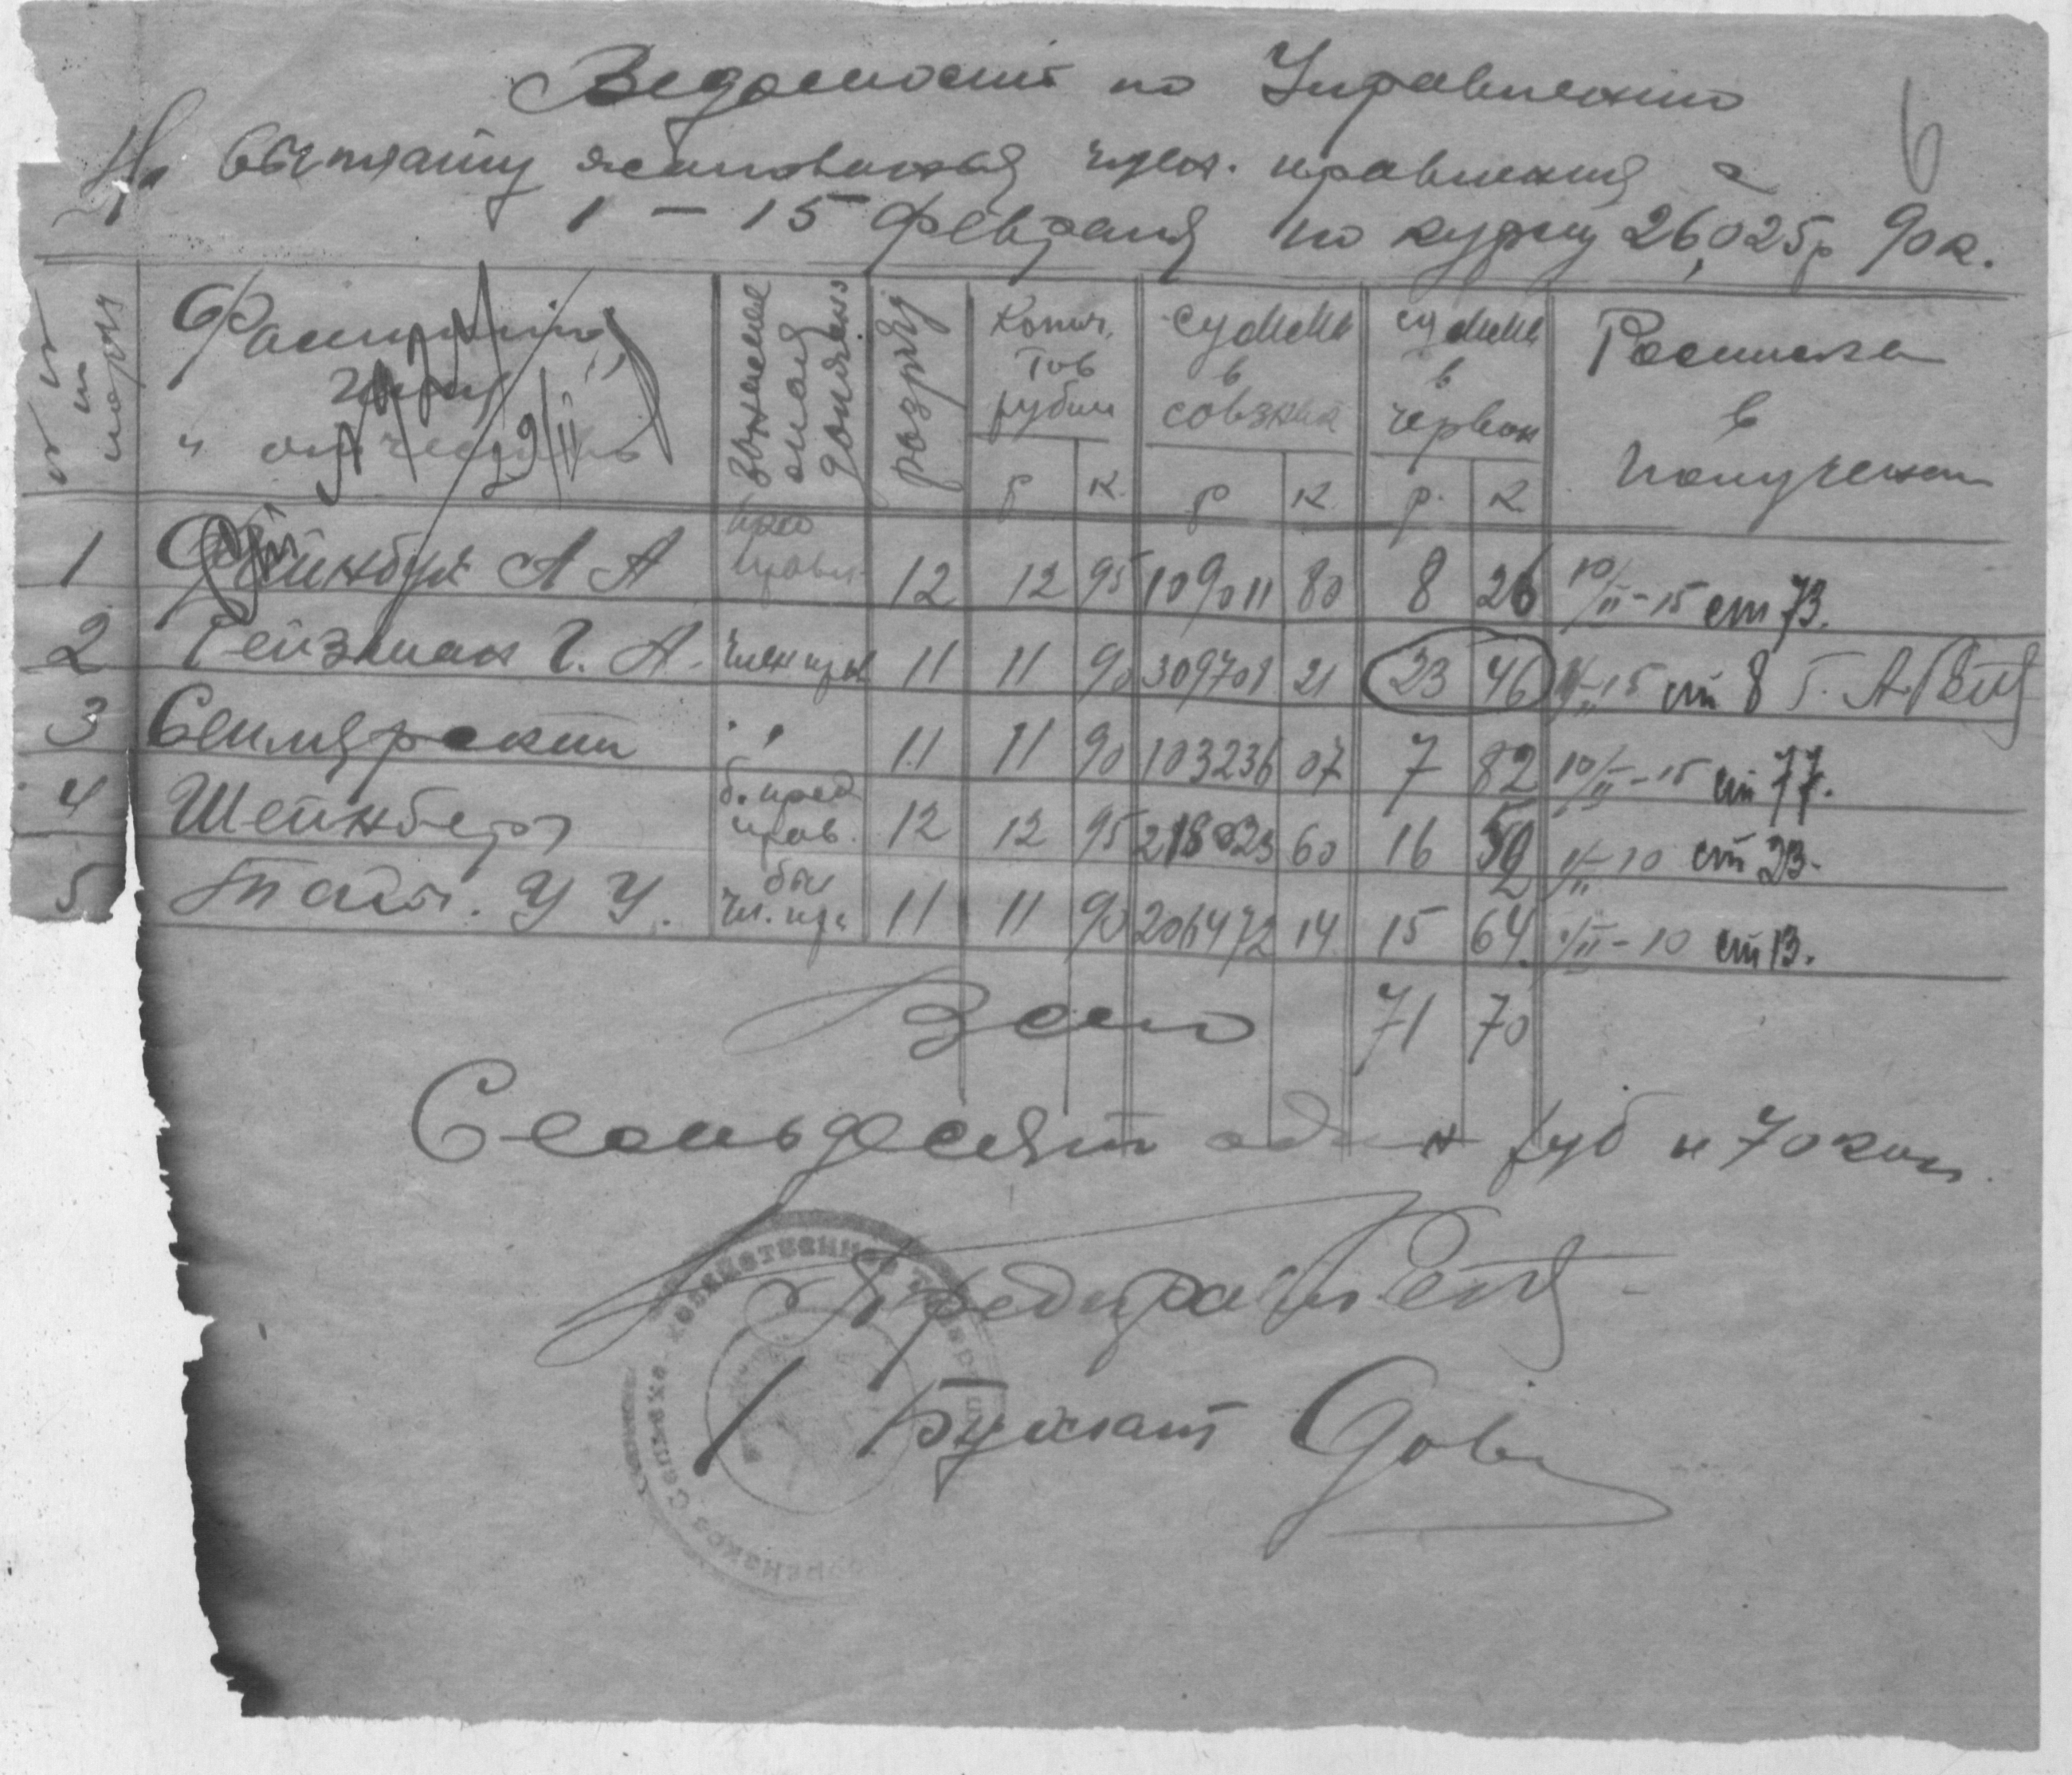 6
Ведомость по Управлению
На выплату жалованья член. правления с
1 – 15 февраля по курсу 26,025р 90к.
Фамилия, имя и отчество
занимаемая должность
розряд
Колич. Тов рубли р К.
Сумма в совзнак р К.
сумма в червон р. К.
Росписка в получении
29/II
1 А А пред правл. 12 12 95 109011 80 8 26 10/II-15 ст 73.
2 Рейзман Г. А. член прав 11 11 90 309701 21 23 46 -15 ст 8 Г. А.
3 " 11 11 90 103236 07 7 82 10/II-15 ст 77.
4 Шейнберг б. пред прав. 12 12 95 218023 60 16 52 -10 ст 23.
5 У У. быв чл. пр. 11 11 90 206472 14 15 64 /II-10 ст 13.
Всего 71 70
Семьдесят один руб и 70 коп
Предправл
Бухгалт